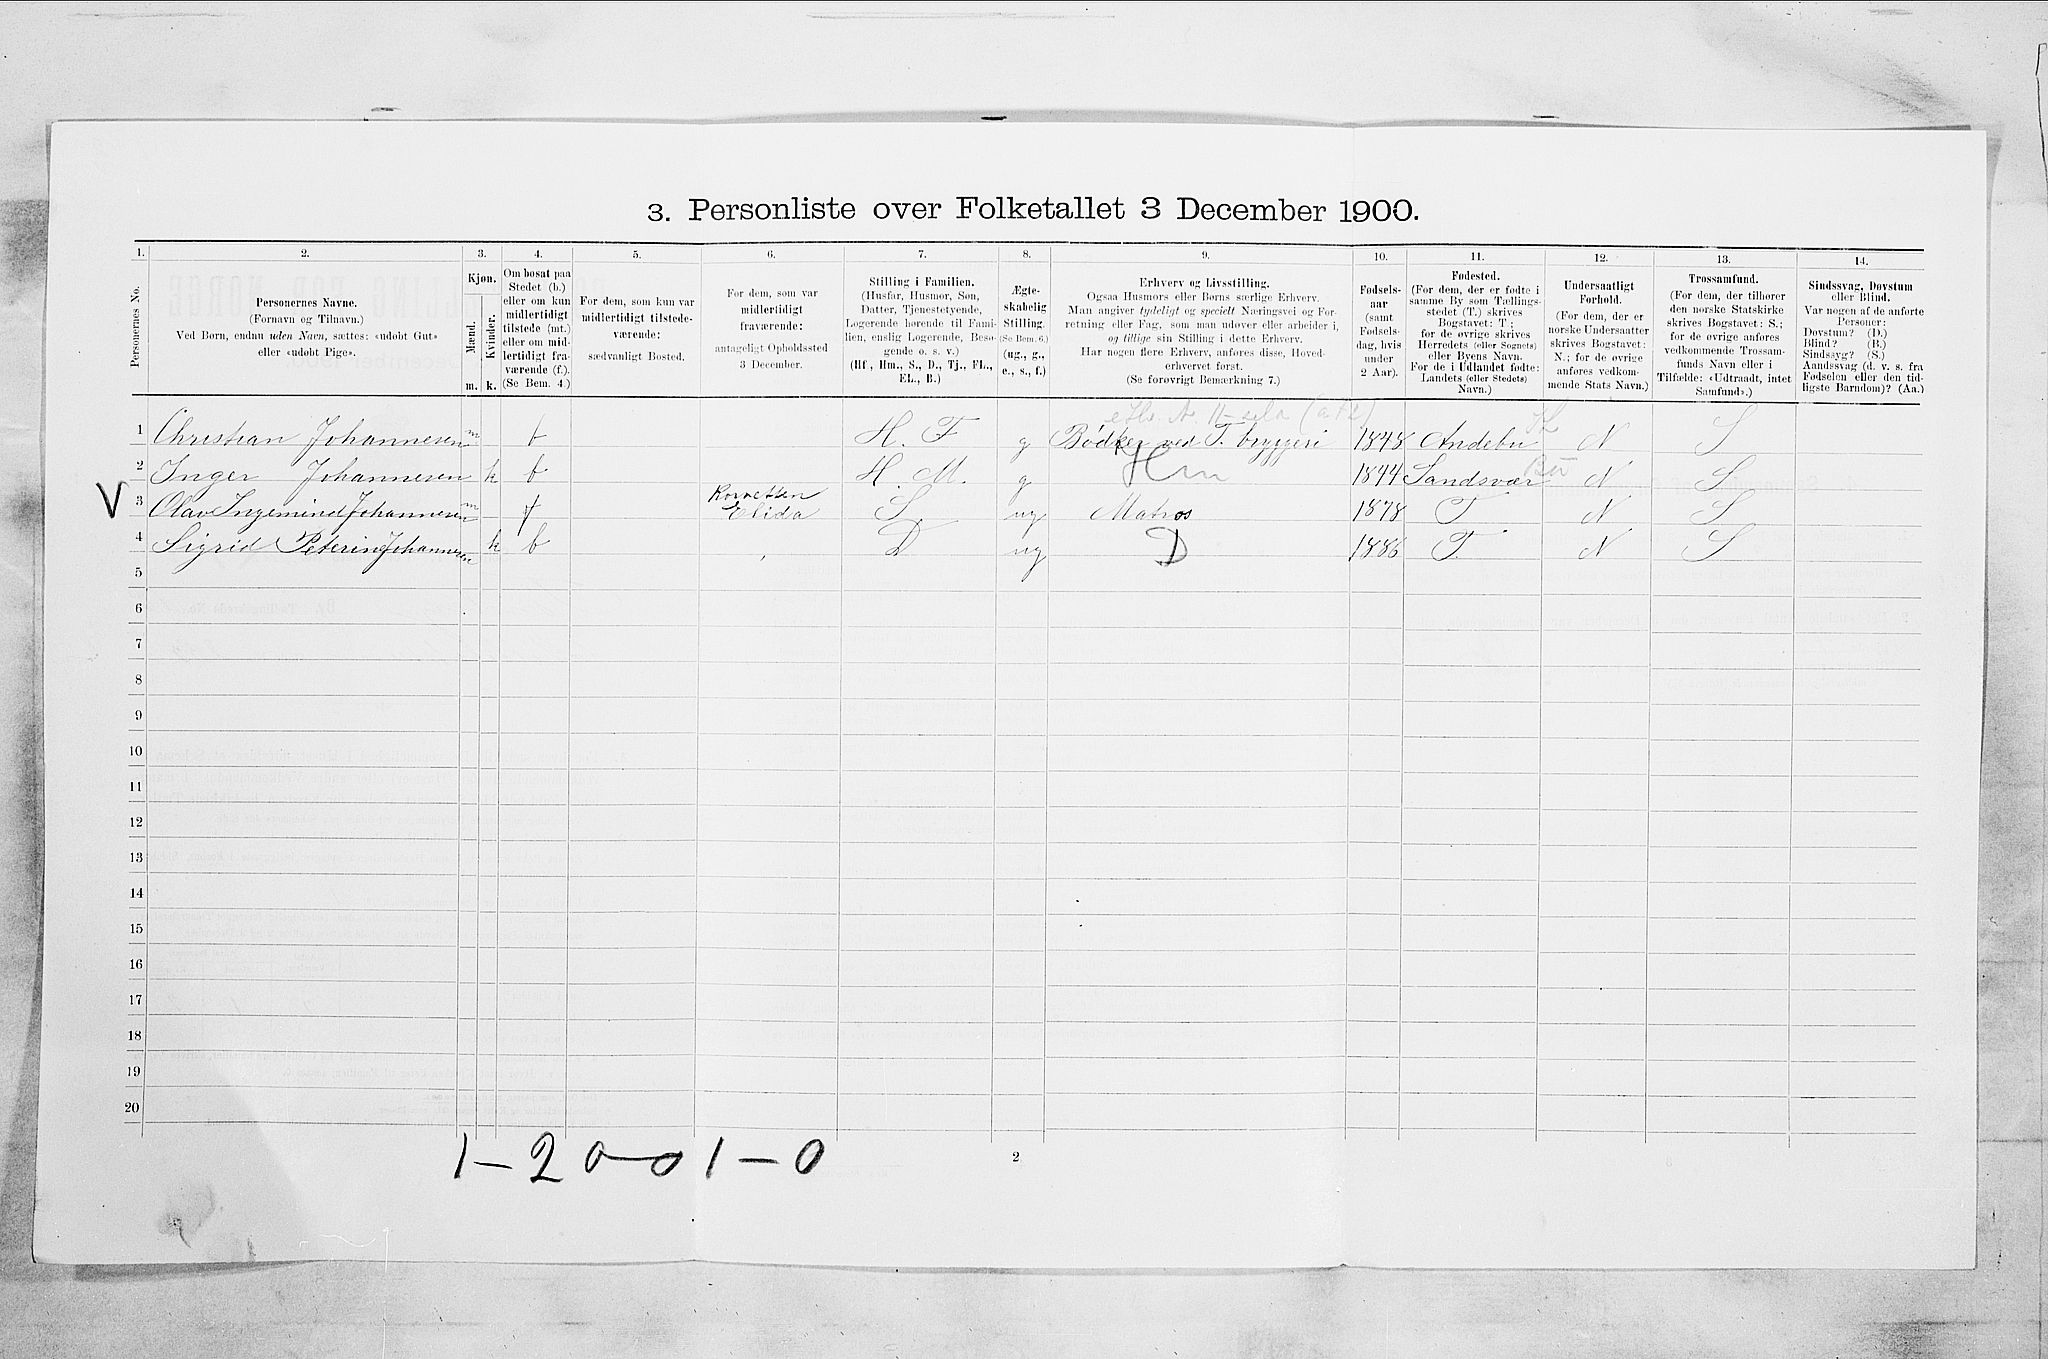 3. Personliste over Folketallet 3 December 1900.
1. 2. 3. 4. 5. 6. 7. 8. 9. 10. 11. 12. 13. 14.
Personernes No.
Personernes Navne.
(Fornavn og Tilnavn.)
Ved Børn, endnu uden Navn, sættes: «udøbt Gut»
eller «udøbt Pige».
Kjøn.
Mænd.
Kvinder.
m. k.
Om bosat paa
Stedet (b.)
eller om kun
midlertidigt
tilstede (mt.)
eller om mid-
lertidigt fra-
værende (f.).
(Se Bem. 4.)
For dem, som kun var
midlertidigt tilstede-
værende:
sædvanligt Bosted.
For dem, som var
midlertidigt
fraværende:
antageligt Opholdssted
3 December.
Stilling i Familien.
(Husfar, Husmor, Søn,
Datter, Tjenestetyende,
Logerende hørende til Fami-
lien, enslig Logerende, Besø-
gende o. s. v.)
(Hf, Hm., S., D., Tj., FL.,
EL., B.)
Ægte-
skabelig
Stilling.
(Se Bem. 6.)
(ug., g.,
e., s., f.)
Erhverv og Livsstilling.
Ogsaa Husmors eller Børns særlige Erhverv.
Man angiver tydeligt og specielt Næringsvei og For-
retning eller Fag, som man udøver eller arbeider i,
og tillige sin Stilling i dette Erhverv.
Har nogen flere Erhverv, anføres disse, Hoved-
erhvervet først.
(Se forøvrigt Bemærkning 7.)
Fødsels-
aar
(samt
Fødsels-
dag, hvis
under
2 Aar).
Fødested.
(For dem, der er fødte i
samme By som Tællings-
stedet (T.) skrives
Bogstavet: T;
for de øvrige skrives
Herredets (eller Sognets)
eller Byens Navn.
For de i Udlandet fødte:
Landets (eller Stedets)
Navn.)
Undersaatligt
Forhold.
(For dem, der er
norske Undersaatter
skrives Bogstavet:
N.; for de øvrige
anføres vedkom-
mende Stats Navn.)
Trossamfund.
(For dem, der tilhører
den norske Statskirke
skrives Bogstavet: S.;
for de øvrige anføres
vedkommende Trossam-
funds Navn eller i
Tilfælde: «Udtraadt, intet
Samfund».)
Sindssvag, Døvstum
eller Blind.
Var nogen af de anførte
Personer:
Døvstum? (D.)
Blind? (B.)
Sindssyg? (S.)
Aandssvag (d. v. s. fra
Fødselen eller den tid-
ligste Barndom)? (Aa.)
1 Christian Johannesen m b H. F g Bødker ved T. bryggeri 1848 Andebu N S
2 Inger Johannesen k b H. M. g Hm 1844 Sandsvær N S
V 3 Olav Ingemind Johannesen m f Korvetten
Elida S ug Matros 1878 T N S
4 Sigrid Peterine Johannesen k b D ug D 1886 T. N S
5
6
7
8
9
10
11
12
13
14
15
16
17
18
19
20
1 - 2 0 - 0 1 - 0
2